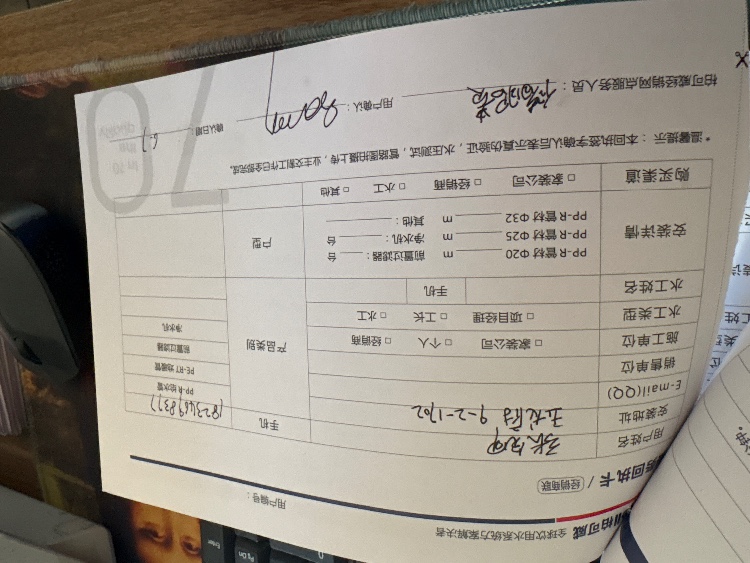 柏可威
全球饮用水系统方案解决者
回执卡 / 经销商联
用户编号：
用户姓名
手机
安装地址 9-2-1702
E-mail(QQ)
销售单位
施工单位 □ 家装公司 □ 个人 □ 经销商
水工类型 □ 项目经理 □ 工长 □ 水工
水工姓名 手机
产品类别
PP-R 给水管
PE-RT 地暖管
前置过滤器
净水机
安装详情
PP-R 管材 Φ20 m 前置过滤器： 台
PP-R 管材 Φ25 m 净水机： 台
PP-R 管材 Φ32 m 其他：
户型
购买渠道 □ 家装公司 □ 经销商 □ 水工 □ 其他
* 温馨提示：本回执签字确认后表示真伪验证，水压测试，管路图拍摄上传，业主交割工作已全部完成。
柏可威经销网点服务人员：
用户确认：
确认日期： 6.7
70
In 70
the
quality
Enter
Pg Dn
0